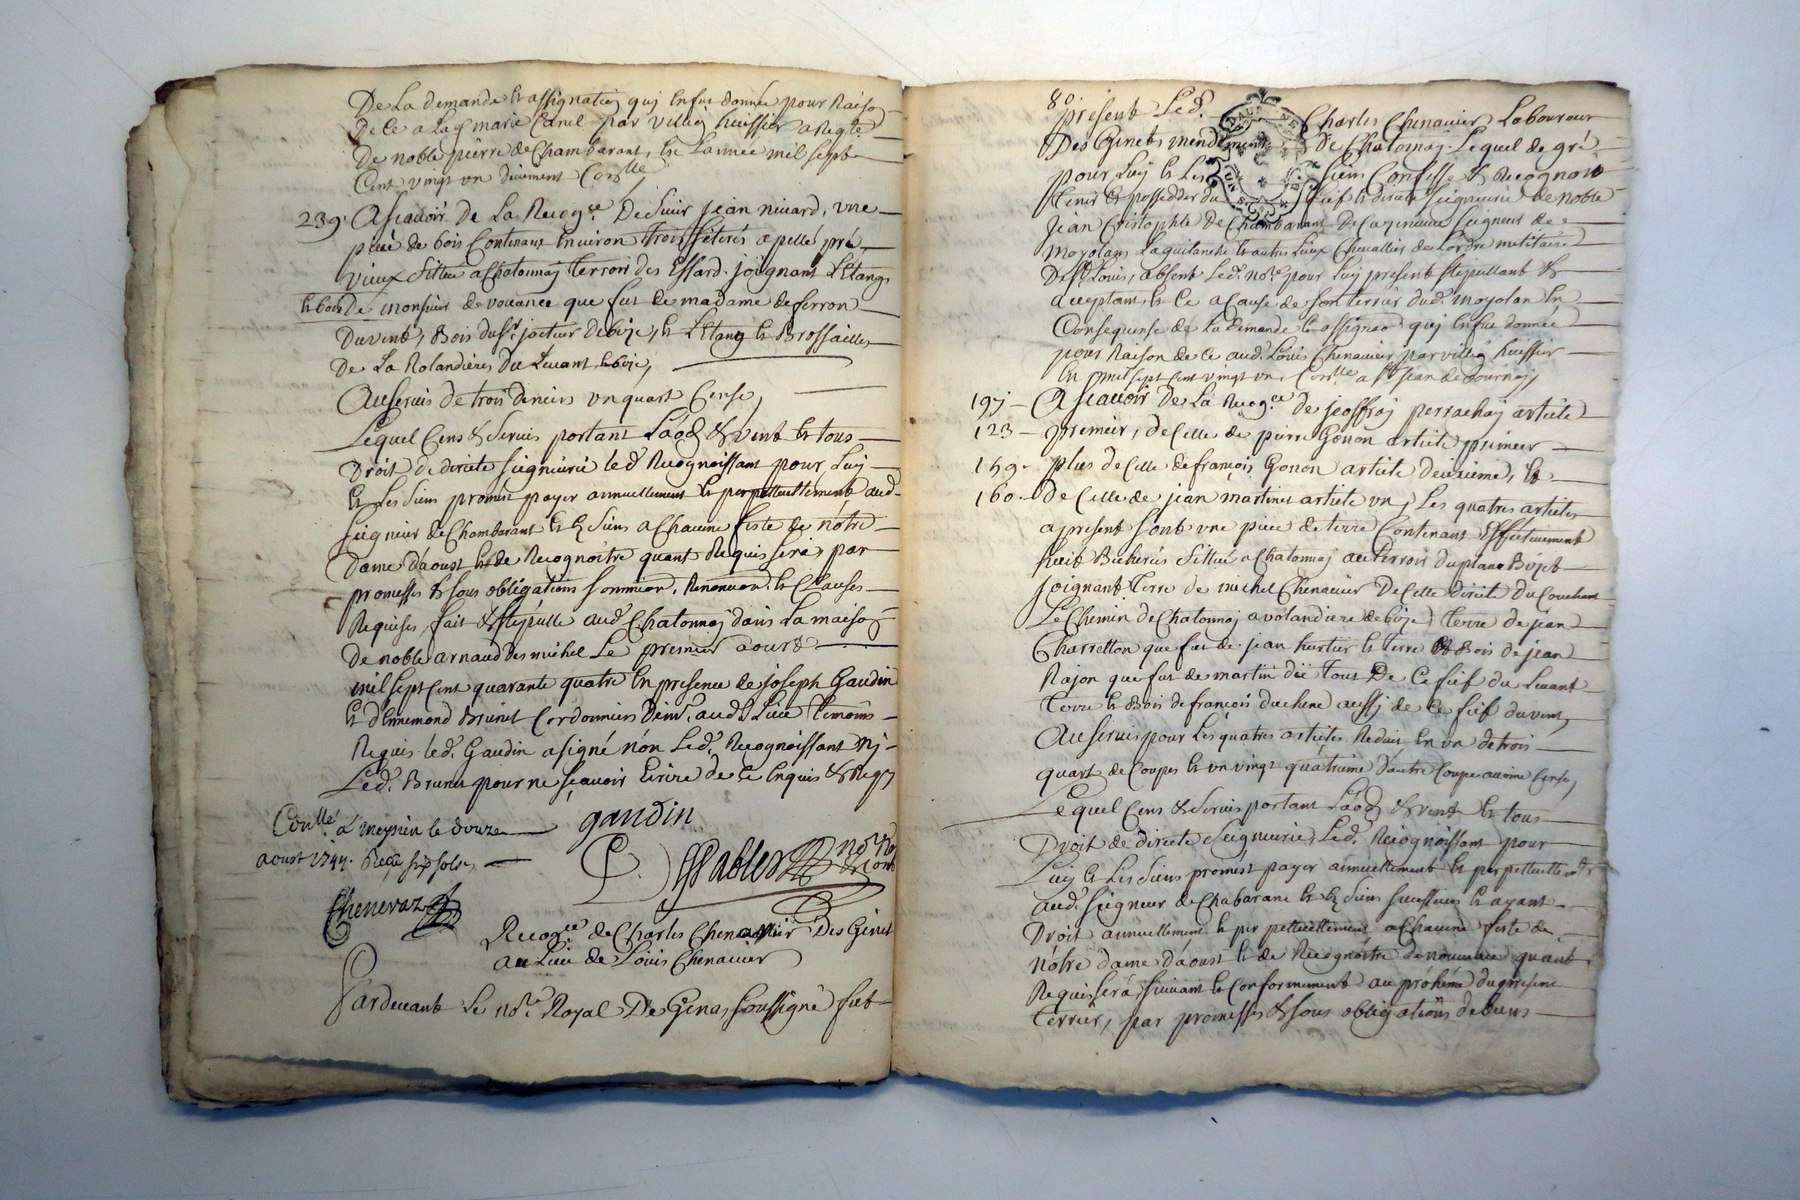 De La demande & assignation quj En fut donnée pour Raison
De Ce a Lad. marie Carel par Villiq huissier a Regte
De noble pierre de Chambarant, En L'année mil sept
Cent vingt un deuement Conllé
239. Ascauoir De La Recogce. De Sieur Jean niuard, vne
piece de bois Contenant Enuiron trois Seterés apellé pré
vieux Sittué a Chatonnaj Terroir des Essard. joignant L'Etang
& bois de monsieur de vouance que fut de madame de ferron
Du vent, Bois du Sr. jocteur de bize, & L'Etang & Brossailles
De La Rolandiere Du Leuant & bize,
Au Seruis de trois deniers vn quart Cense,
Lequel Cens & Seruis portant Laod & vent & tous
Droit de directe Seigneurie led. Recognoissant pour Luj
& Les Siens promis payer annuellement & perpettuellement aud.
Seigneur de Chambarant & Siens a Chacune feste de nôtre
Dame d'aoust & de Recognoitre quant Requis Sera, par
promesses & Sous obligations Soumission, Renonciaon. & Clauses
Requises, fait & Stipullé aud. Chatonnaj dans La maison
De noble arnaud des michel Le premier aout
mil Sept Cent quarante quatre En presence de joseph Gaudin
& d'Ennemond Brunet Cordonniers aud. Lieu Temoins
Requis led. Gaudin a signé non Led. Recognoissant nj
Led. Brunet pour ne Sçauoir Ecrire de Ce Enquis & Reqs
gaudin
Conllé a meysieu le douze
aoust 1744. Reçu six sols
Pablet nore. Ro
Chenevaz
Recogce de Charles Chenauier Des Ginet
au Lieu de Louis Chenauier
Pardeuant Le nore. Royal De Genas, Soussigné fut
80.
present Led. Charles Chenauier Laboureur
Des Ginets mendement De Chatonnaj Lequel de gré
pour Luj & Les Siens Confesse & Recognoit
tenir & posseder du fief & directe Seigneurie de noble
Jean Cristophle De Chambarant De Seigneur de
moyolans Laquilanche & autres Lieux Cheuallier de L'ordre militaire
De St. Louis, absent Led. nore. pour Luj present Stipullant &
acceptant, & Ce a Cause de Son terrier dud. moyolan En
Consequense de La demande & assignaon quj En fut donnée
pour Raison de Ce aud. Louis Chenauier par villiq huissier
En mil sept Cent vingt un, Conllé a St. jean de Bournaj
191 — Ascauoir De La Recogce. de jeoffraj perrachaj article
123 — premier, de Celle de pierre Gonon article premier
159 — plus de Celle de françois Gonon article deuxieme, &
160 — De Celle de jean martinet article vn, Les quatres articles
a present Sont vne piece de terre Contenant Effectiuement
huit Bicherés Sittué a Chatonnaj au Terroir du plane Bizet
Joignant terre de michel Chenauier De Cette directe du Couchant
Le Chemin de Chatonnaj a volandiere de bize, terre de jean
Charretton que fut de jean hurtier & terre & Bois de jean
Rajon que fut de martin dii tous De Ce fief du Leuant
terre & Bois de françois duchene aussj de Ce fief du vent,
Au Seruis pour Les quatres articles Reduis En vn de trois
quart de Coupes & vn vingt quatrieme d'autre Coupe auoine Cense,
Lequel Cens & Seruis portant Laod & vent & tous
Droit de directe Seigneurie, Led. Recognoissant pour
Luj & Les Siens promis payer annuellement & perpettuellement
aud. Seigneur de Chabarant & Siens Successeurs & ayant
Droit annuellement & perpettuellement a Chacune feste de
nôtre dame d'aoust & de Recognoitre de nouueau quant
Requis Sera, Suiuant & Conformement au prohême du present
Terrier, par promesses & Sous obligations de biens